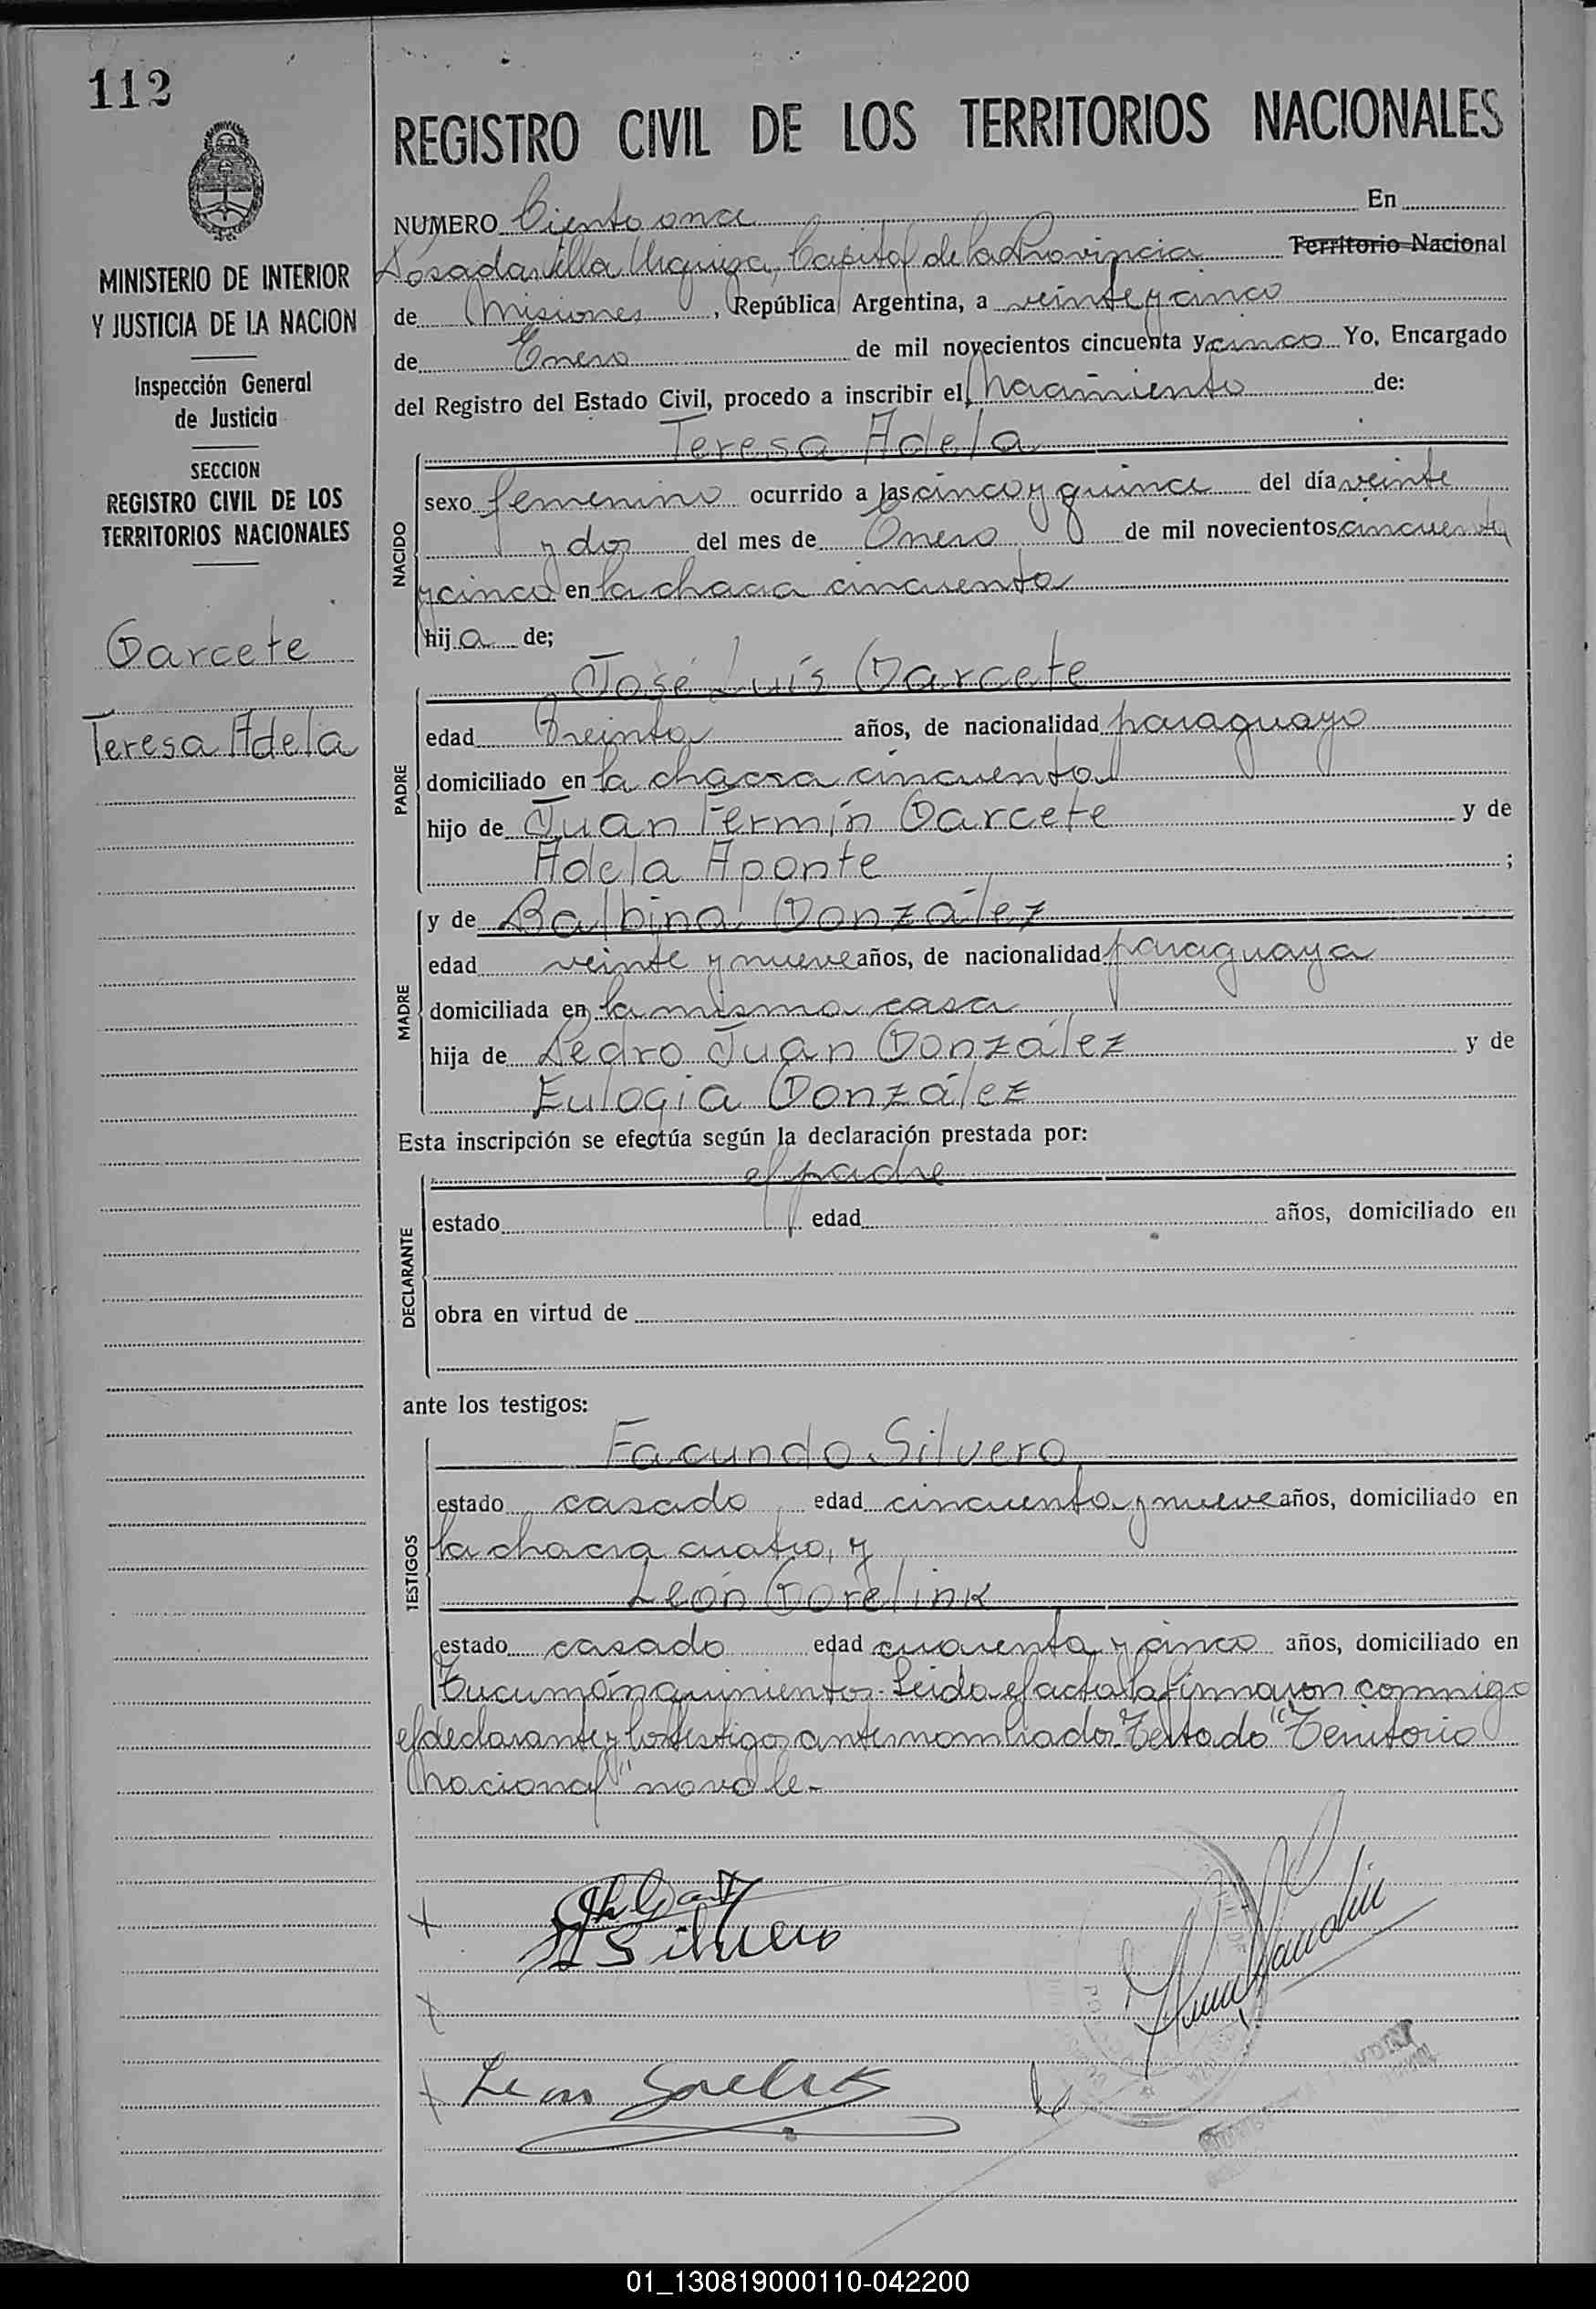 112
MINISTERIO DE INTERIOR
Y JUSTICIA DE LA NACION
Inspección General
de Justicia
SECCION
REGISTRO CIVIL DE LOS
TERRITORIOS NACIONALES
Garcete
Teresa Adela
REGISTRO CIVIL DE LOS TERRITORIOS NACIONALES
NUMERO Ciento once En
Posadas Villa Urquiza, Capital de la Provincia Territorio Nacional
de Misiones, República Argentina, a veinte y cinco
de Enero de mil novecientos cincuenta y cinco Yo, Encargado
del Registro del Estado Civil, procedo a inscribir el Nacimiento de:
Teresa Adela
NACIDO
sexo femenino ocurrido a las cinco y quince del día veinte
y dos del mes de Enero de mil novecientos cincuenta
y cinco en la chacra cincuenta
hija de;
José Luís Garcete
PADRE
edad treinta años, de nacionalidad paraguayo
domiciliado en la chacra cincuenta
hijo de Juan Fermín Garcete y de
Adela Aponte ;
y de Balbina González
MADRE
edad veinte y nueve años, de nacionalidad paraguaya
domiciliada en la misma casa
hija de Pedro Juan González y de
Eulogia González
Esta inscripción se efectúa según la declaración prestada por:
el padre
DECLARANTE
estado edad años, domiciliado en
obra en virtud de
ante los testigos:
Facundo Silvero
TESTIGOS
estado casado edad cincuenta y nueve años, domiciliado en
la chacra cuatro, y
León Gorelink
estado casado edad cuarenta y cinco años, domiciliado en
Tucumán quinientos. Leida el acta la firmaron conmigo
el declarante y los testigos antes nombrados. Testado "Territorio
Nacional" no vale.-
Silvero
Leon
01_130819000110-042200